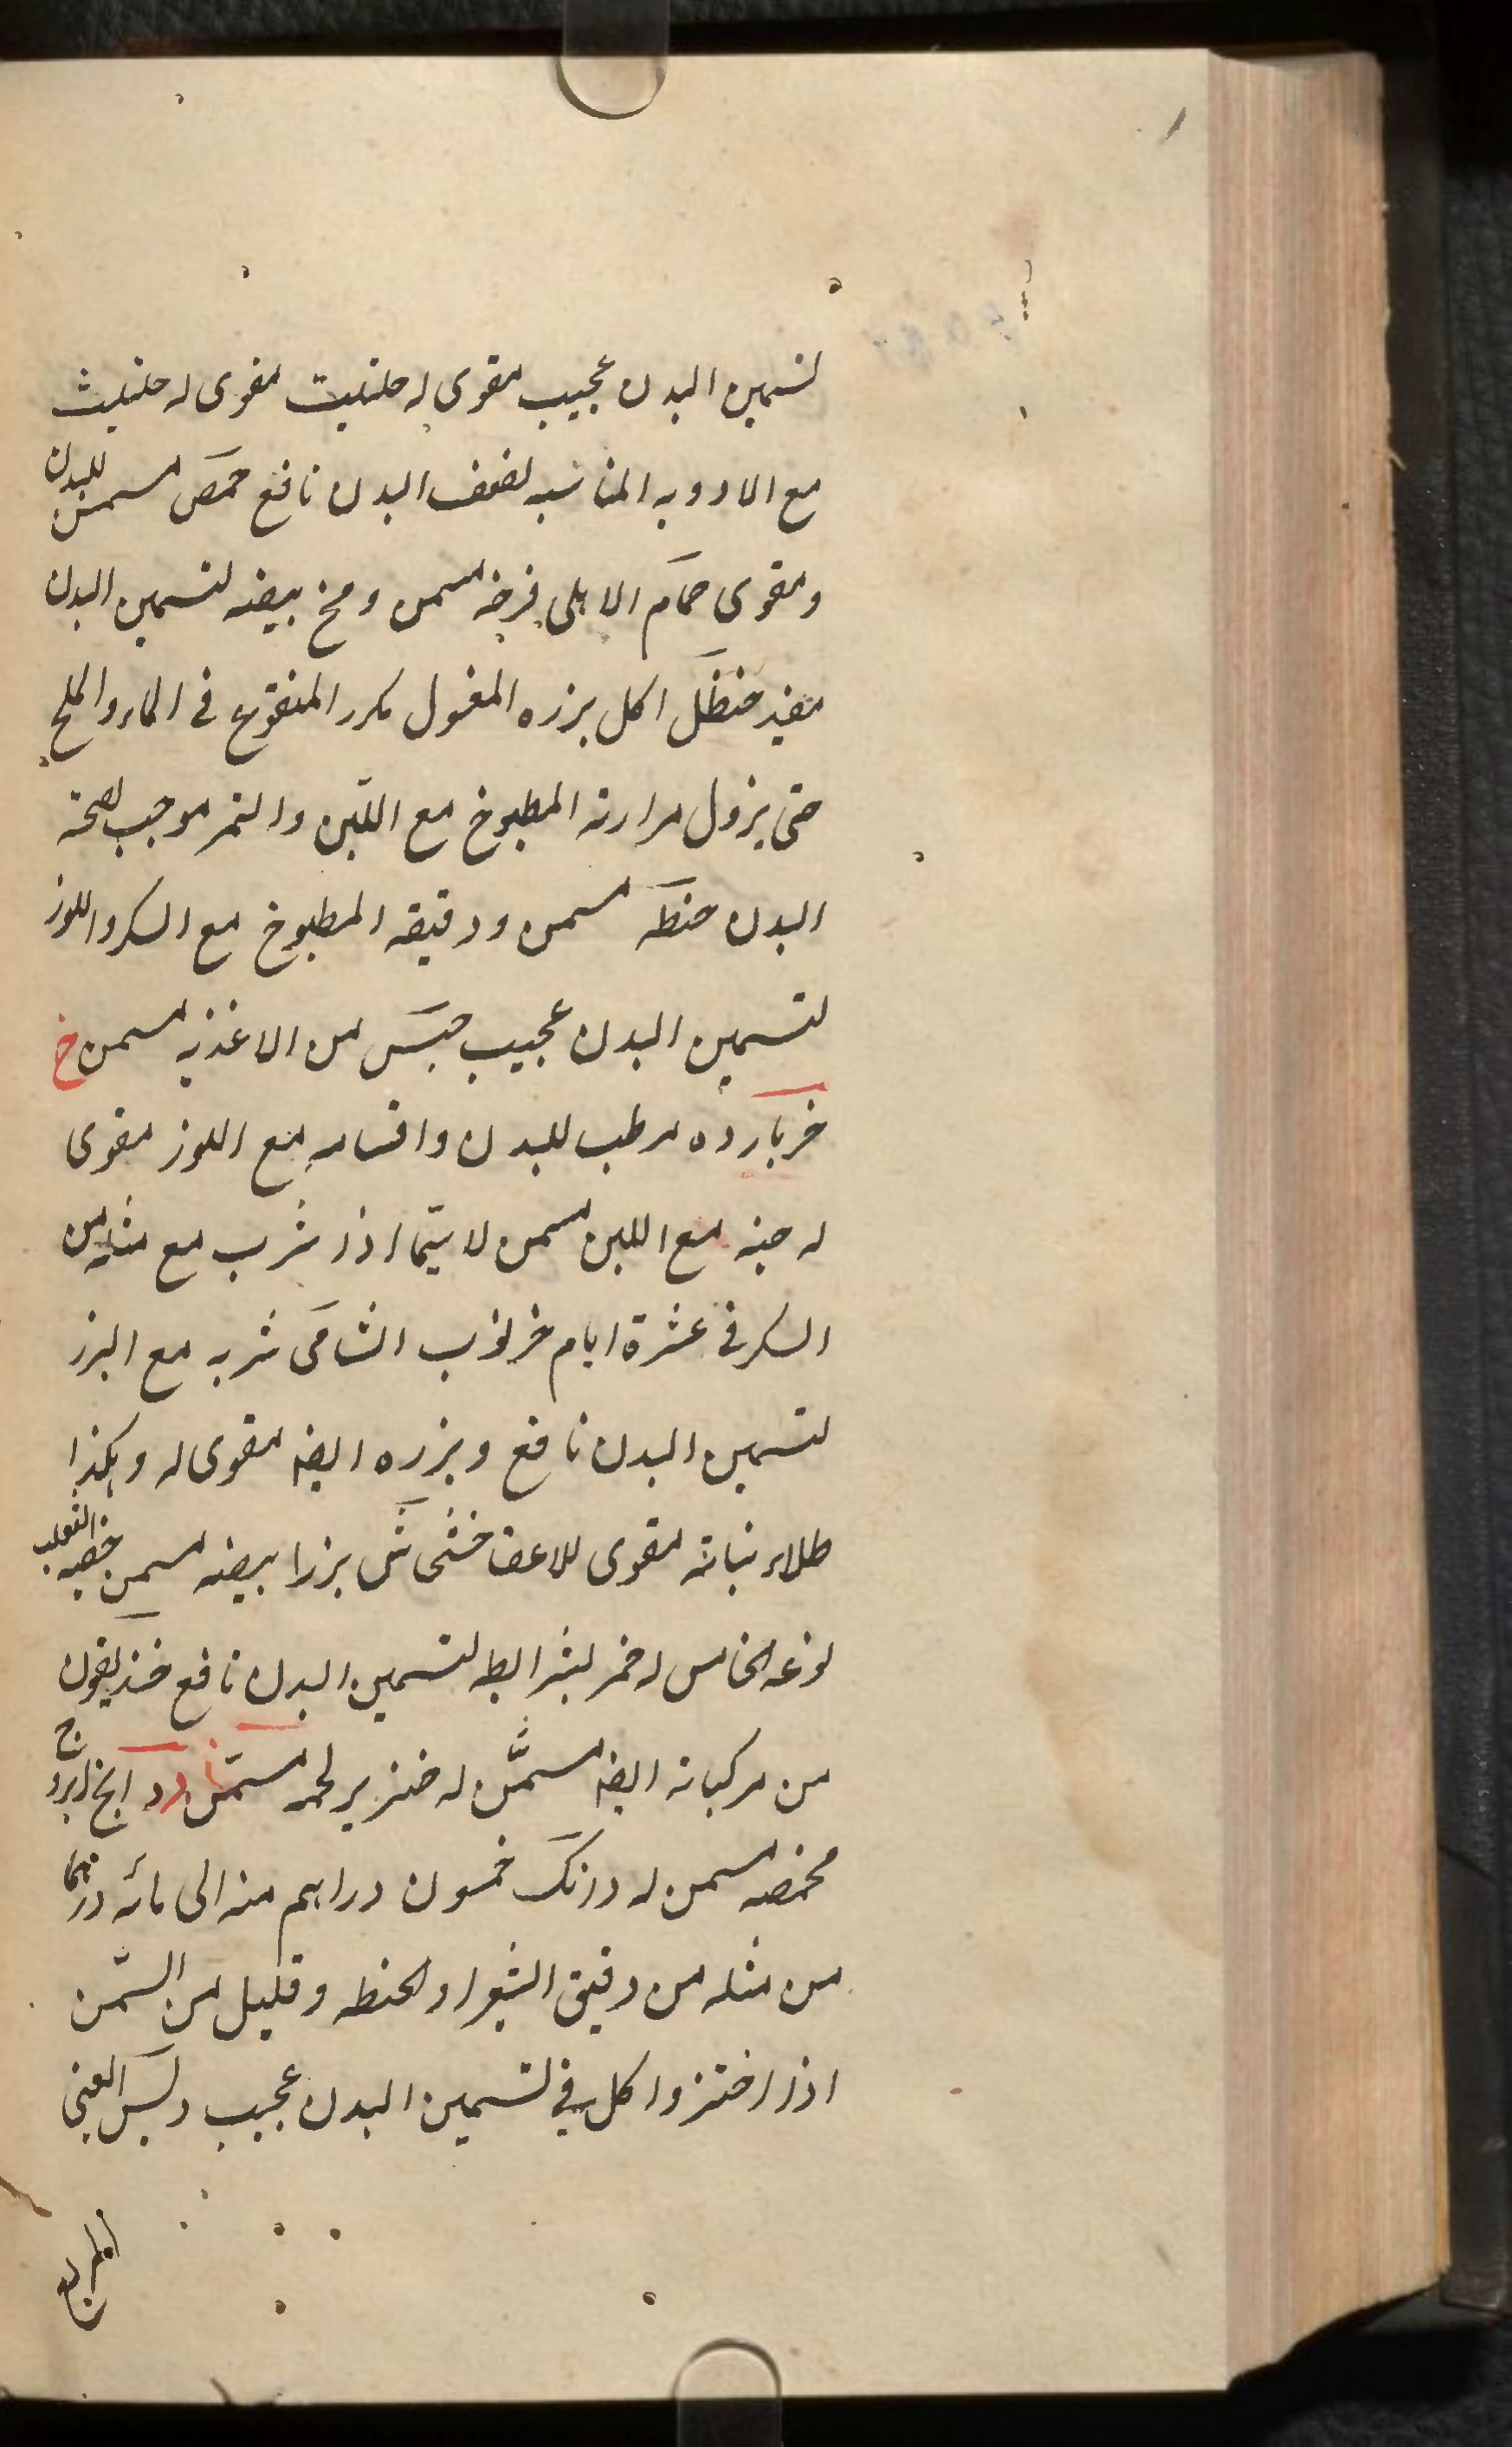 لتسمين البدن عجيب مقوى له حلتيت مقوى له حلتيث
مع الادويه المناسبه لضعف البدن نافع حمص مسمن للبدن
ومقوى حمام الاهلى فرخه مسمن ومخ بيضه لتسمين البدن
مفيد حنظل اكل بزره المغسول مكرر المنقوع فى الماء والملح
حتى يزول مرارته المطبوخ مع اللبن والتمر موجب لصحة
البدن حنطه مسمن ودقيقه المطبوخ مع السكر واللوز
لتسمين البدن عجيب حبس من الاغذيه مسمن خ
خربارده مرطب للبدن واقسامه مع اللوز مقوى
له حبه مع اللبن مسمن لا سيما اذا شرب مع مثليه من
السكر فى عشرة ايام خرنوب الشامى شربه مع البزر
لتسمين البدن نافع وبزره ايضه مقوى له وهكذا
طلاء نباته مقوى للاعضا خشخاش بزرا بيضه مسمن خصيه الثعلب
نوعه الخامس له خمر بشرايطه لتسمين البدن نافع خنديقون
من مركباته ايضه مسمن له خنزير لحمه مسمن دد
محمصه مسمن له درنك خمسون دراهم منه الى مائه درهما
من مثله من دقيق الشعير او الحنطه وقليل من السمن
اذا اختبز واكل فى لتسمين البدن عجيب دبس العنبى